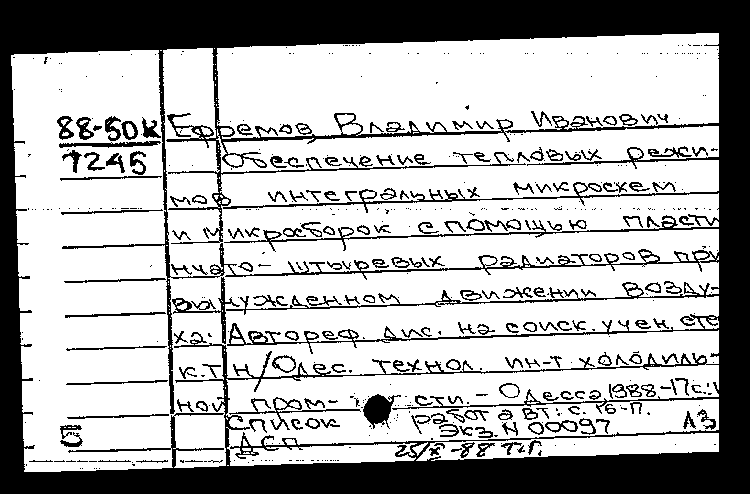 88-50к Ефремов, Владимир Иванович
7245 Обеспечение тепловых режи-
мов интегральных микросхем
и микросборок с помощью пласти
нчато-штыревых радиаторов при
вынужденном движении возду-
ха: Автореф. дис. на соиск. учен. сте
к.т.н/Одес. технол. ин-т холодиль-
ной пром- сти. - Одесса, 1988-17с.:
Список работ авт.: с. 16-17.
Экз. N 00097 АЗ
5 ДСП
25/X -88